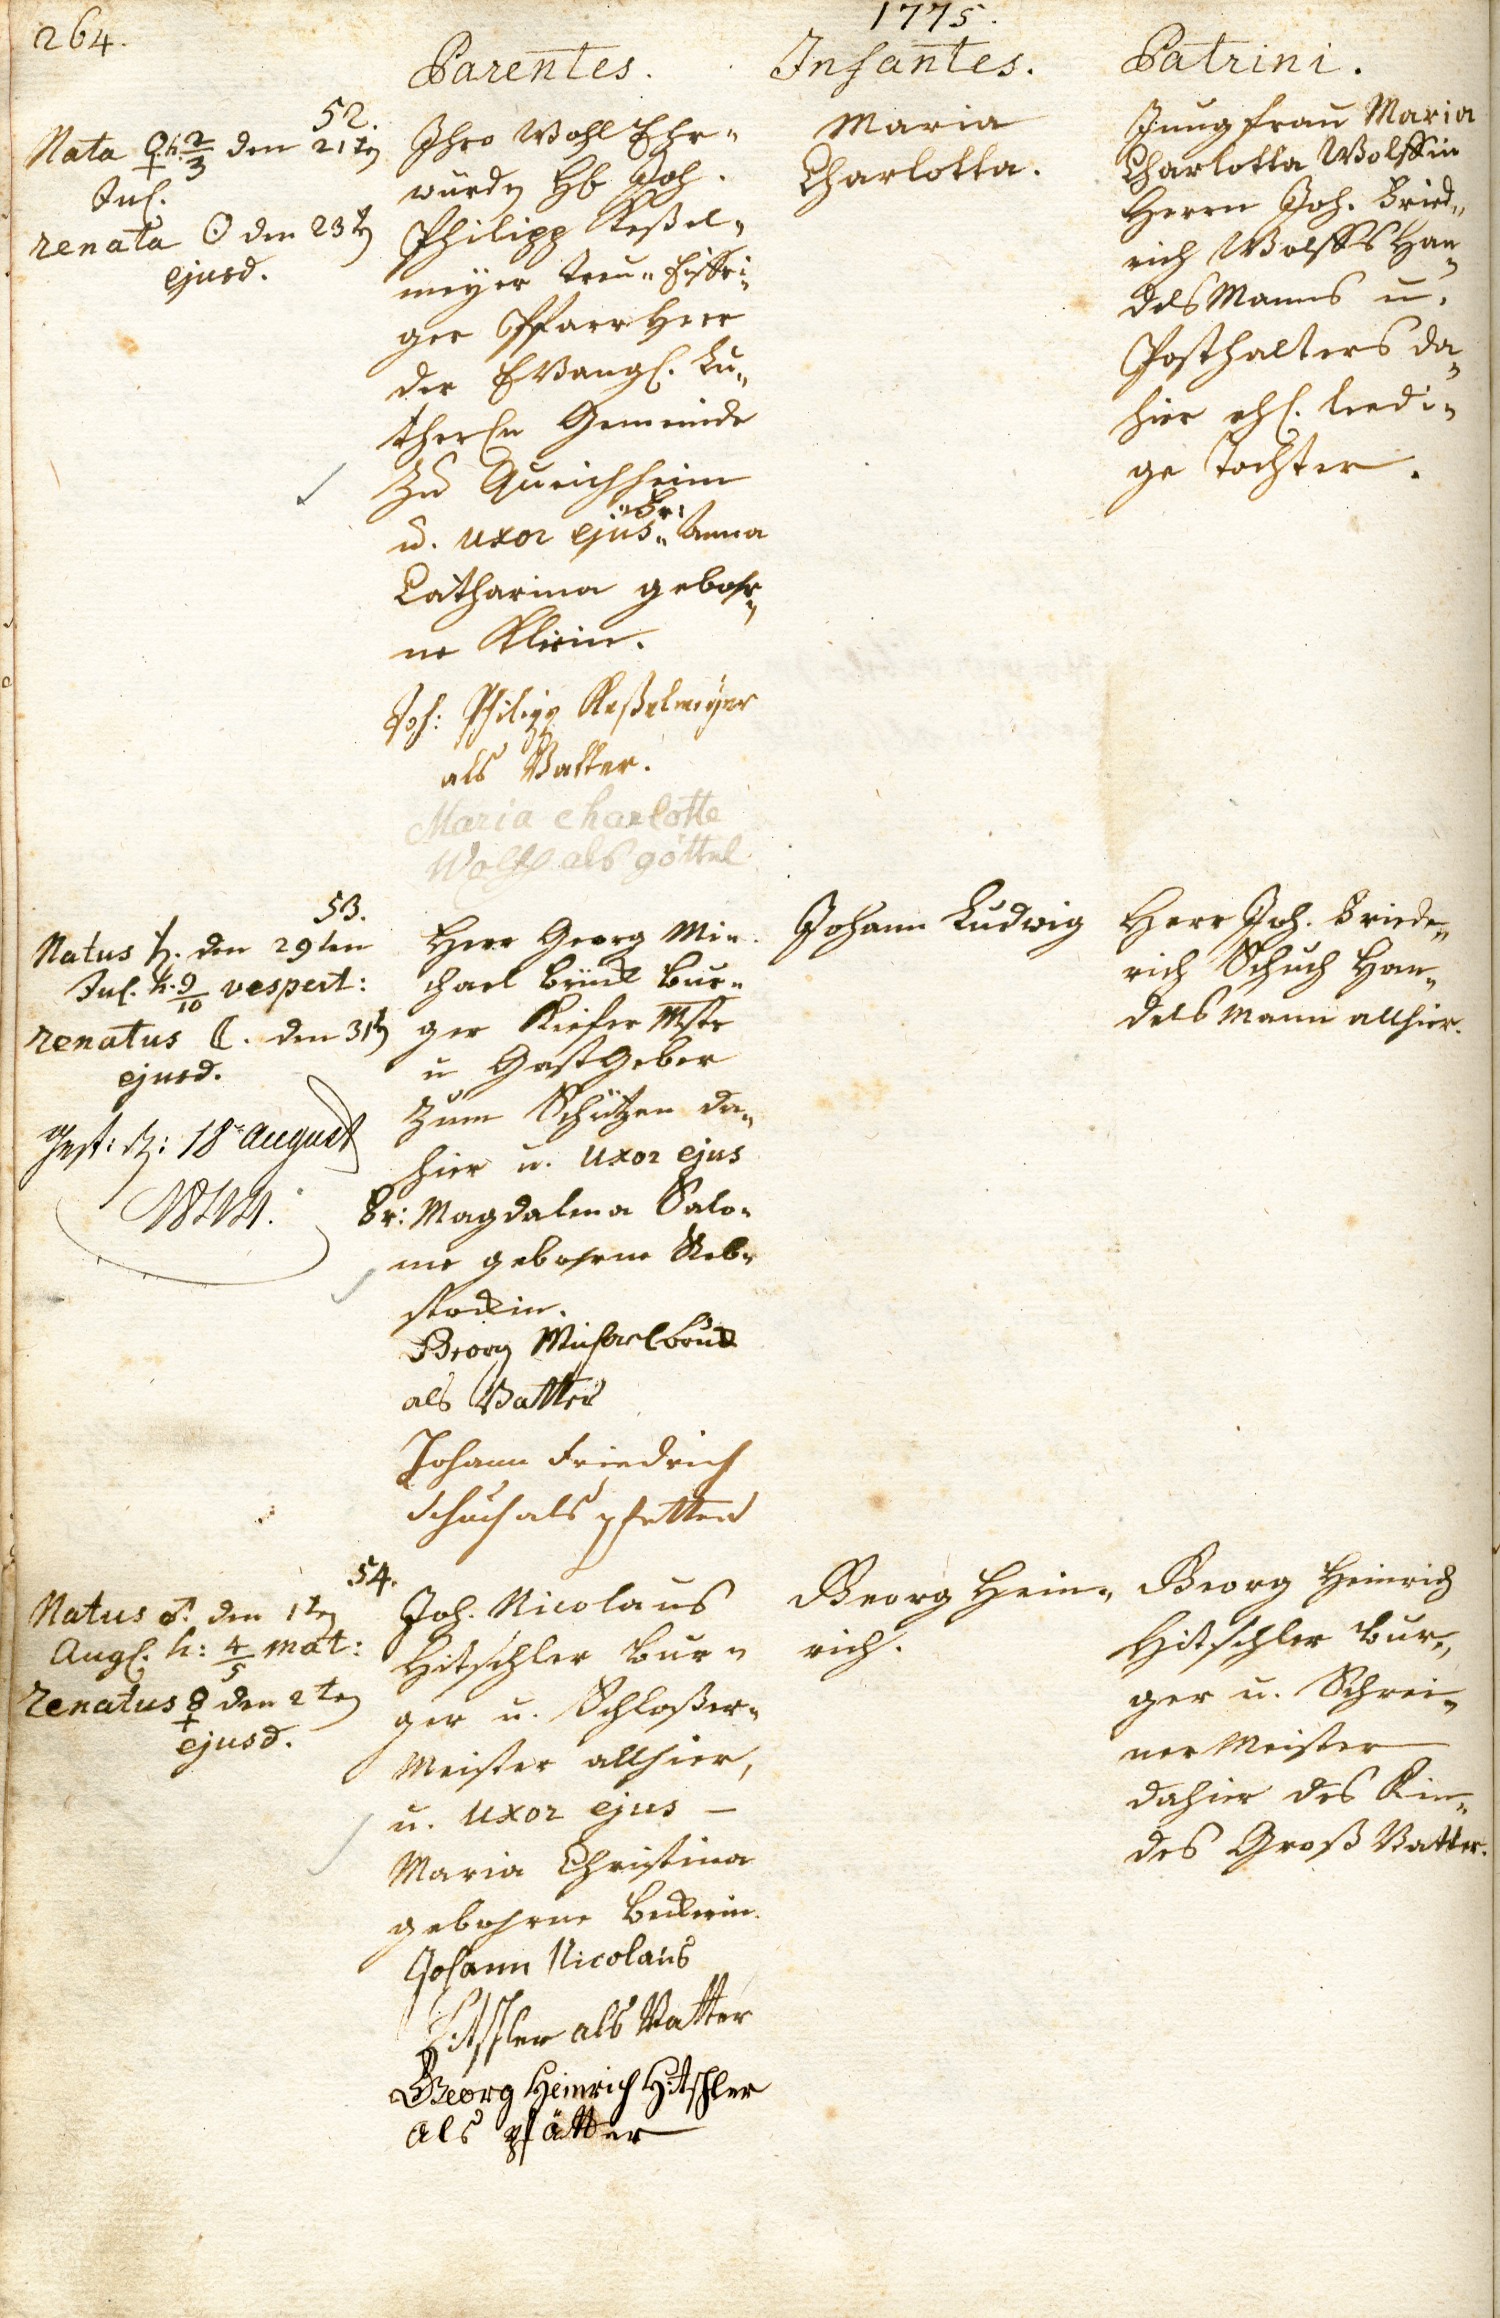 264.
1775.
Parentes. Infantes. Patrini.
52.
Nata ♀ h. 2/3 den 21ten
Jul.
renata ☉ den 23ten
ejusd.
Ihro Wohl Ehr„
würden H Joh.
Philipp Keßel„
meyer treu„ Eiffri„
ger Pfarr Herr
der Evangl. Lu„
therln Gemeinde
zu Queichheim
u. uxor ejus „Fr: Anna
Catharina gebohr„
ne Klein.
Joh: Philipp Keßelmeyer
als Vatter.
Maria charlotte
Wolff als göttel
Maria
Charlotta.
Jungfrau Maria
Charlotta Wolffin
Herrn Joh. Fried„
rich Wolffs Han„
dels Manns u.
Posthalters da„
hier ehl. leedi„
ge Tochter.
53.
Natus ♄. den 29ten
Jul. h. 9/10 vespert:
renatus ☾. den 31ten
ejusd.
gest: d: 18 August
Herr Georg Mi„
chael Brück Bur„
ger Kiefer Mstr
u GastGeber
zum Schützen da„
hier u. uxor ejus
Fr: Magdalena Salo„
me gebohrne Reb„
stockin.
Georg Michael brück
als Vatter
Johann Friedrich
Schuch als pfetter
Johann Ludwig
Herr Joh. Friede„
rich Schuch Han„
dels Mann allhier.
54.
Natus ♂. den 1ten
Augl. h: 4/5 mat:
renatus ☿ den 2ten
ejusd.
Joh. Nicolaus
Hitschler Bur„
ger u. Schloßer„
Meister allhier,
u. uxor ejus –
Maria Christina
gebohrne Beckerin.
Johann Nicolaus
Hitschler als Vatter
Georg Heinrich Hitschler
als pfätter
Georg Hein„
rich.
Georg Heinrich
Hitschler Bur„
ger u. Schrei„
ner Meister
dahier des Kin„
des Groß Vatter.